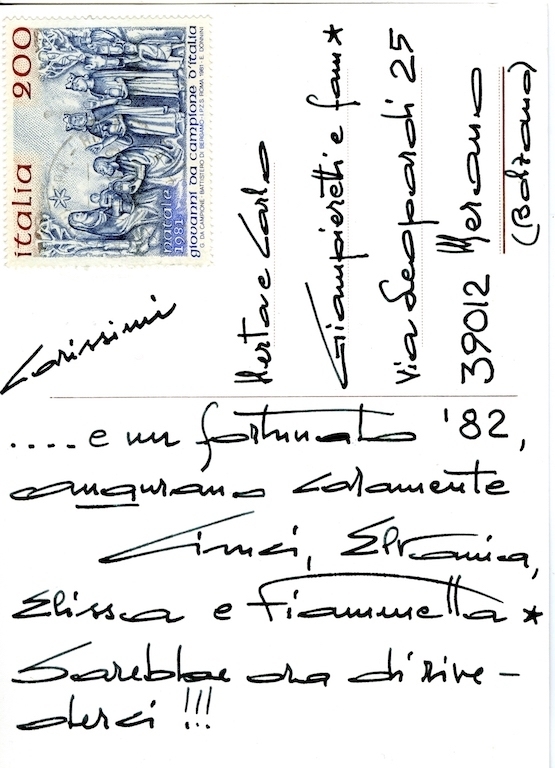 Carissimi
....e un fortunato '82,
augurano caramente
Elissa e Fiammetta *
Sarebbe ora di rive-
derci !!!
Herta e Carlo
Giampieretti e fam*
Via Leopardi 25
39012 Merano
(Bolzano)
italia 200
natale 1981
giovanni da campione d'italia
G. DA CAMPIONE - BATTISTERO DI BERGAMO - I.P.Z.S. ROMA 1981 - E. DONNINI